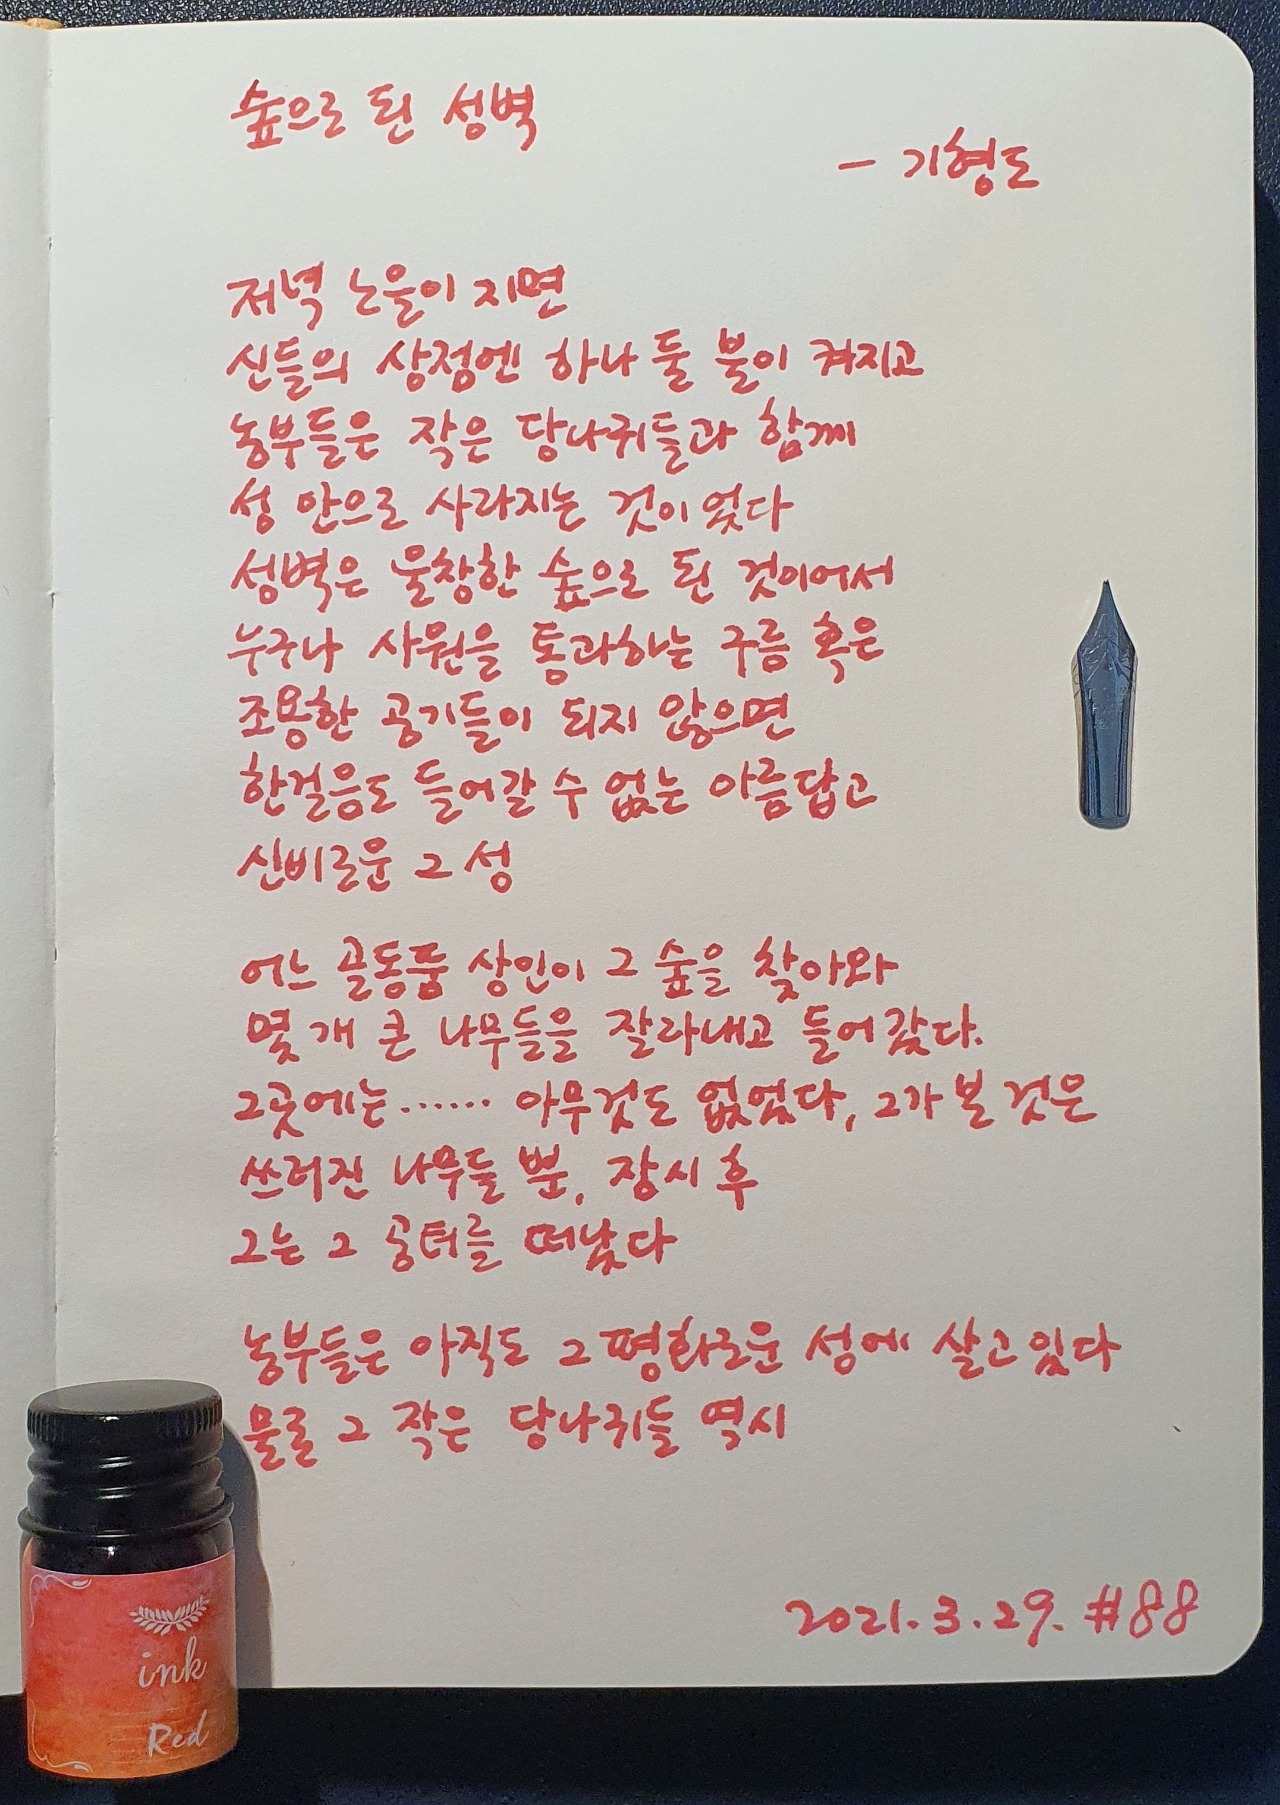 숲으로 된 성벽
- 기형도
저녁 노을이 지면
신들의 상점엔 하나 둘 불이 켜지고
농부들은 작은 당나귀들과 함께
성 안으로 사라지는 것이었다
성벽은 울창한 숲으로 된 것이어서
누구나 사원을 통과하는 구름 혹은
조용한 공기들이 되지 않으면
한걸음도 들어갈 수 없는 아름답고
신비로운 그 성
어느 골동품 상인이 그 숲을 찾아와
몇 개 큰 나무들을 잘라내고 들어갔다.
그곳에는...... 아무것도 없었다, 그가 본 것은
쓰러진 나무들 뿐, 잠시 후
그는 그 공터를 떠났다
농부들은 아직도 그 평화로운 성에 살고 있다
물론 그 작은 당나귀들 역시
2021.3.29. #88
ink
Red